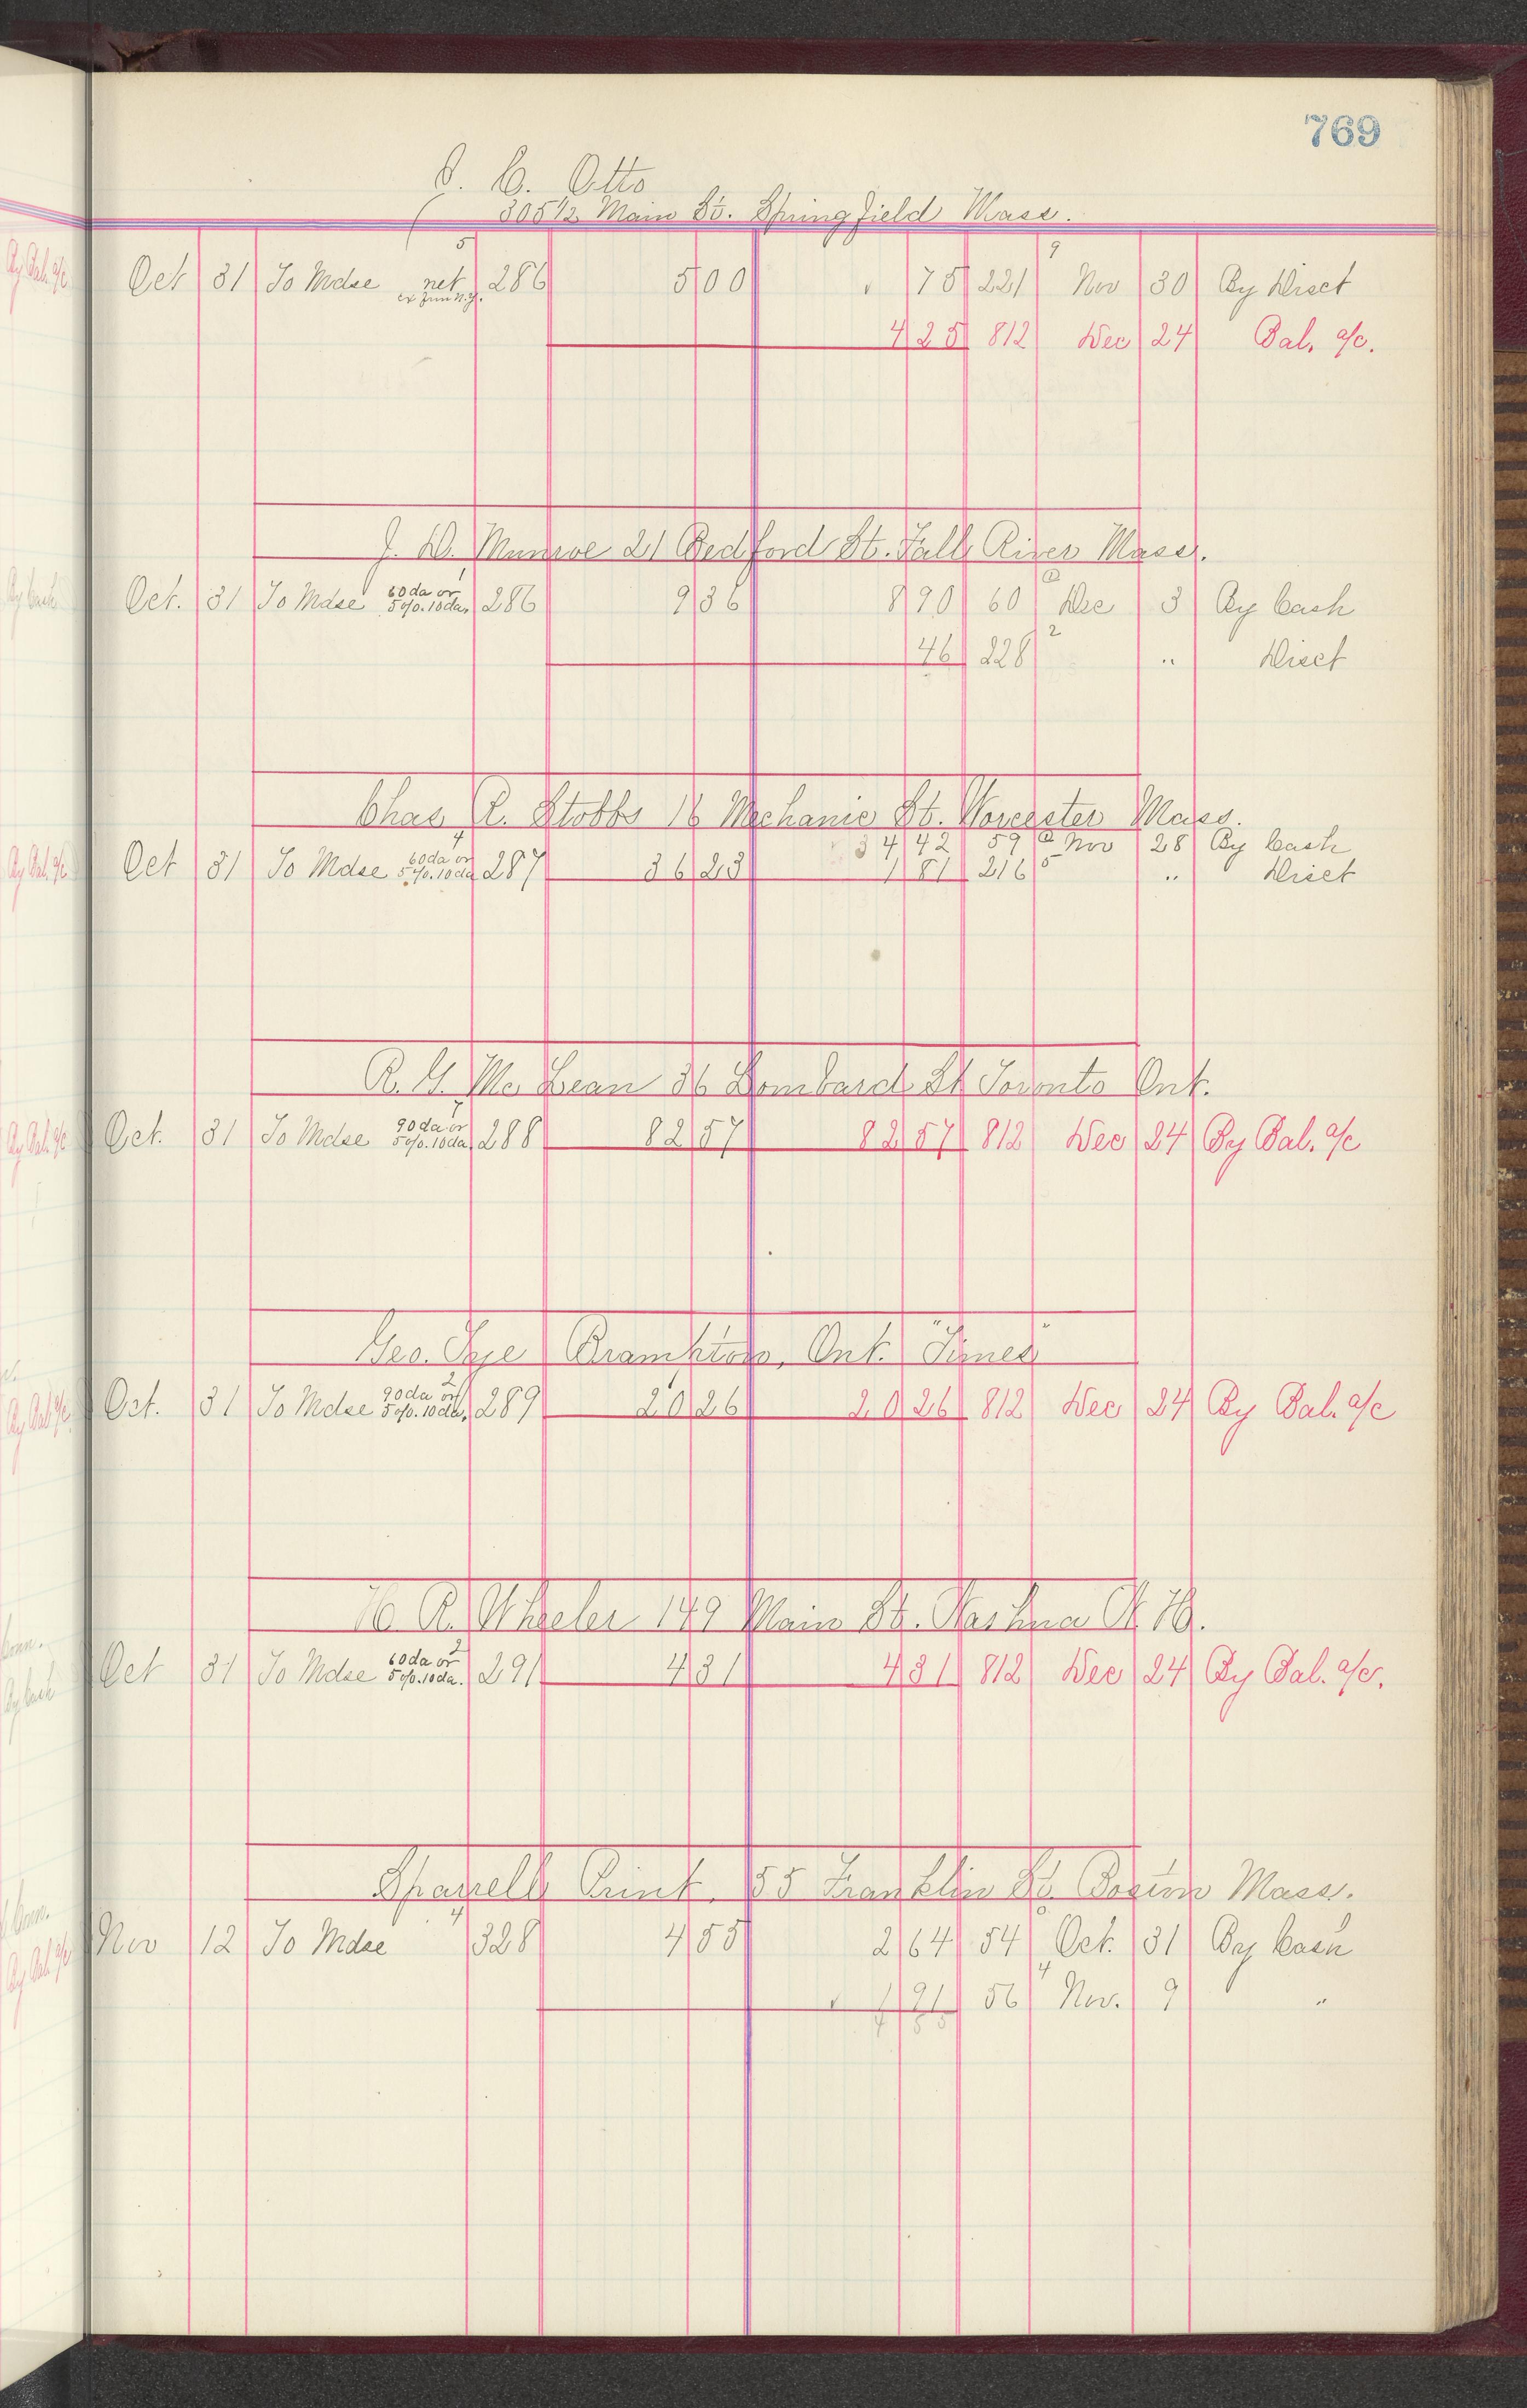 769
C. C. Otto
305 1/2 Main St. Springfield Mass.
Oct 31 To Mdse net 5 286 5 00 75 221 9 Nov 30 By Disct
ex Jun N.Y.
4 25 812 Dec 24 Bal. a/c.
J. D. Munroe 21 Bedford St. Fall River Mass.
Oct. 31 To Mdse 60 da or 5%. 10 da. 1 286 9 36 8 90 60 1 Dec 3 By Cash
46 228 2 " Disct
Chas R. Stobbs 16 Mechanic St. Worcester Mass.
34 42 59 2 Nov 28 By Cash
Oct 31 To Mdse 60 da or 5%. 10 da 4 287 36 23 1 81 216 5 " Disct
R. G. Mc Lean 36 Lombard St Toronto Ont.
Oct. 31 To Mdse 90 da or 5%. 10 da 7 288 82 57 82 57 812 Dec 24 By Bal. a/c
Geo. Tye Brampton, Ont. "Times"
Oct. 31 To Mdse 90 da or 5%. 10 da. 2 289 20 26 20 26 812 Dec 24 By Bal. a/c
H. R. Wheeler 149 Main St. Nashua N. H.
Oct 31 To Mdse 60 da or 5%. 10 da. 2 291 4 31 4 31 812 Dec 24 By Bal. a/c.
Sparrell Print. 155 Franklin St. Boston Mass.
Nov 12 To Mdse 4 328 4 55 2 64 54 Oct. 31 By Cash
1 91 56 4 Nov. 9 "
4 55